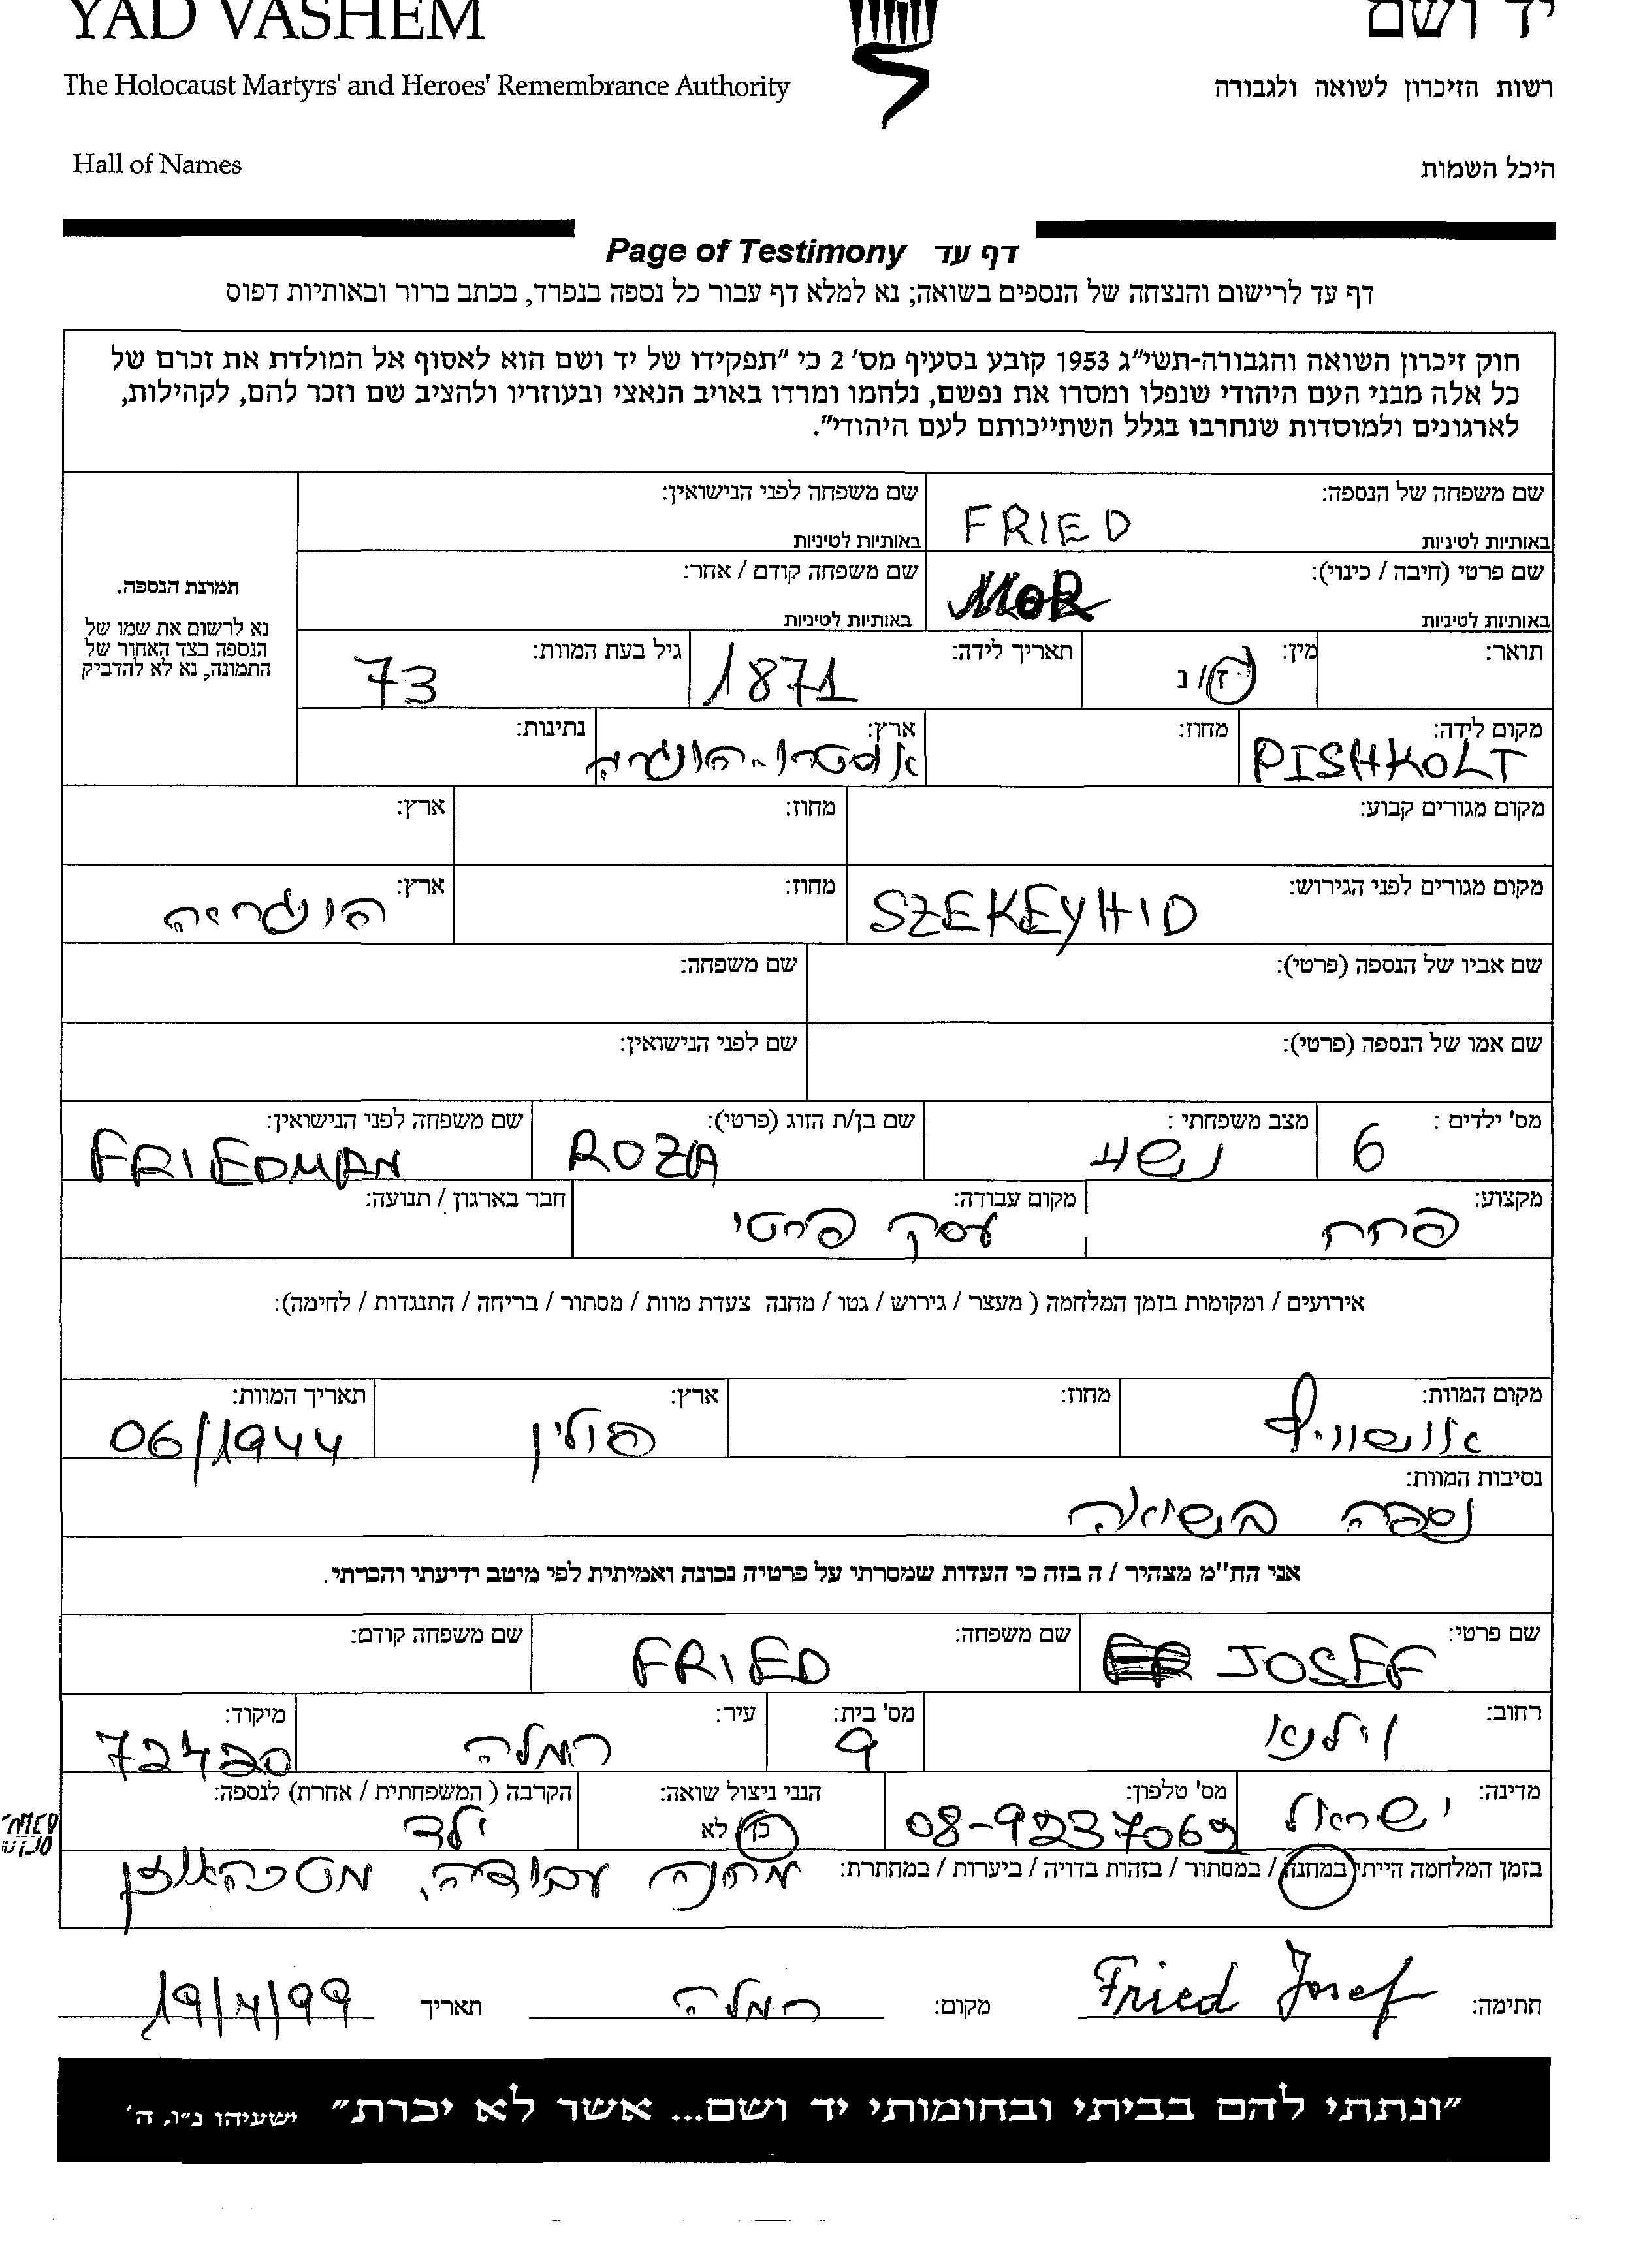 YAD VASHEM
יד ושם
The Holocaust Martyrs' and Heroes' Remembrance Authority
רשות הזיכרון לשואה ולגבורה
Hall of Names
היכל השמות
Page of Testimony דף עד
דף עד לרישום והנצחה של הנספים בשואה; נא למלא דף עבור כל נספה בנפרד, בכתב ברור ובאותיות דפוס
חוק זיכרון השואה והגבורה-תשי"ג 1953 קובע בסעיף מס' 2 כי "תפקידו של יד ושם הוא לאסוף אל המולדת את זכרם של
כל אלה מבני העם היהודי שנפלו ומסרו את נפשם, נלחמו ומרדו באויב הנאצי ובעוזריו ולהציב שם וזכר להם, לקהילות,
לארגונים ולמוסדות שנחרבו בגלל השתייכותם לעם היהודי".
תמונת הנספה.
נא לרשום את שמו של
הנספה בצד האחור של
התמונה, נא לא להדביק
שם משפחה של הנספה: FRIED
באותיות לטיניות
שם משפחה לפני הנישואין:
באותיות לטיניות
שם פרטי (חיבה / כינוי): MOR
באותיות לטיניות
שם משפחה קודם / אחר:
באותיות לטיניות
תואר:
מין: ז / נ
תאריך לידה: 1871
גיל בעת המוות: 73
מקום לידה: PISHKOLT
מחוז:
ארץ: אוסטרו-הונגריה
נתינות:
מקום מגורים קבוע:
מחוז:
ארץ:
מקום מגורים לפני הגירוש: SZEKEYHID
מחוז:
ארץ: הונגריה
שם אביו של הנספה (פרטי):
שם משפחה:
שם אמו של הנספה (פרטי):
שם לפני הנישואין:
מס' ילדים : 6
מצב משפחתי : נשוי
שם בן/ת הזוג (פרטי): ROZA
שם משפחה לפני הנישואין: FRIEDMAN
מקצוע: פחח
מקום עבודה: עסק פרטי
חבר בארגון / תנועה:
אירועים / ומקומות בזמן המלחמה ( מעצר / גירוש / גטו / מחנה צעדת מוות / מסתור / בריחה / התנגדות / לחימה):
מקום המוות: אושוויץ
מחוז:
ארץ: פולין
תאריך המוות: 06/1944
נסיבות המוות:
נספה בשואה
אני הח"מ מצהיר / ה בזה כי העדות שמסרתי על פרטיה נכונה ואמיתית לפי מיטב ידיעתי והכרתי.
שם פרטי: JOSEF
שם משפחה: FRIED
שם משפחה קודם:
רחוב: וילנא
מס' בית: 9
עיר: רמלה
מיקוד: 72420
מדינה: ישראל
מס' טלפון: 08-9237069
הנני ניצול שואה: כן / לא
הקרבה ( המשפחתית / אחרת) לנספה: ילד
בזמן המלחמה הייתי במחנה / במסתור / בזהות בדויה / ביערות / במחתרת: מחנה עבודה, מטהאוזן
חתימה: Fried Josef
מקום: רמלה
תאריך 19/4/99
"ונתתי להם בביתי ובחומותי יד ושם... אשר לא יכרת" ישעיהו נ"ו, ה'